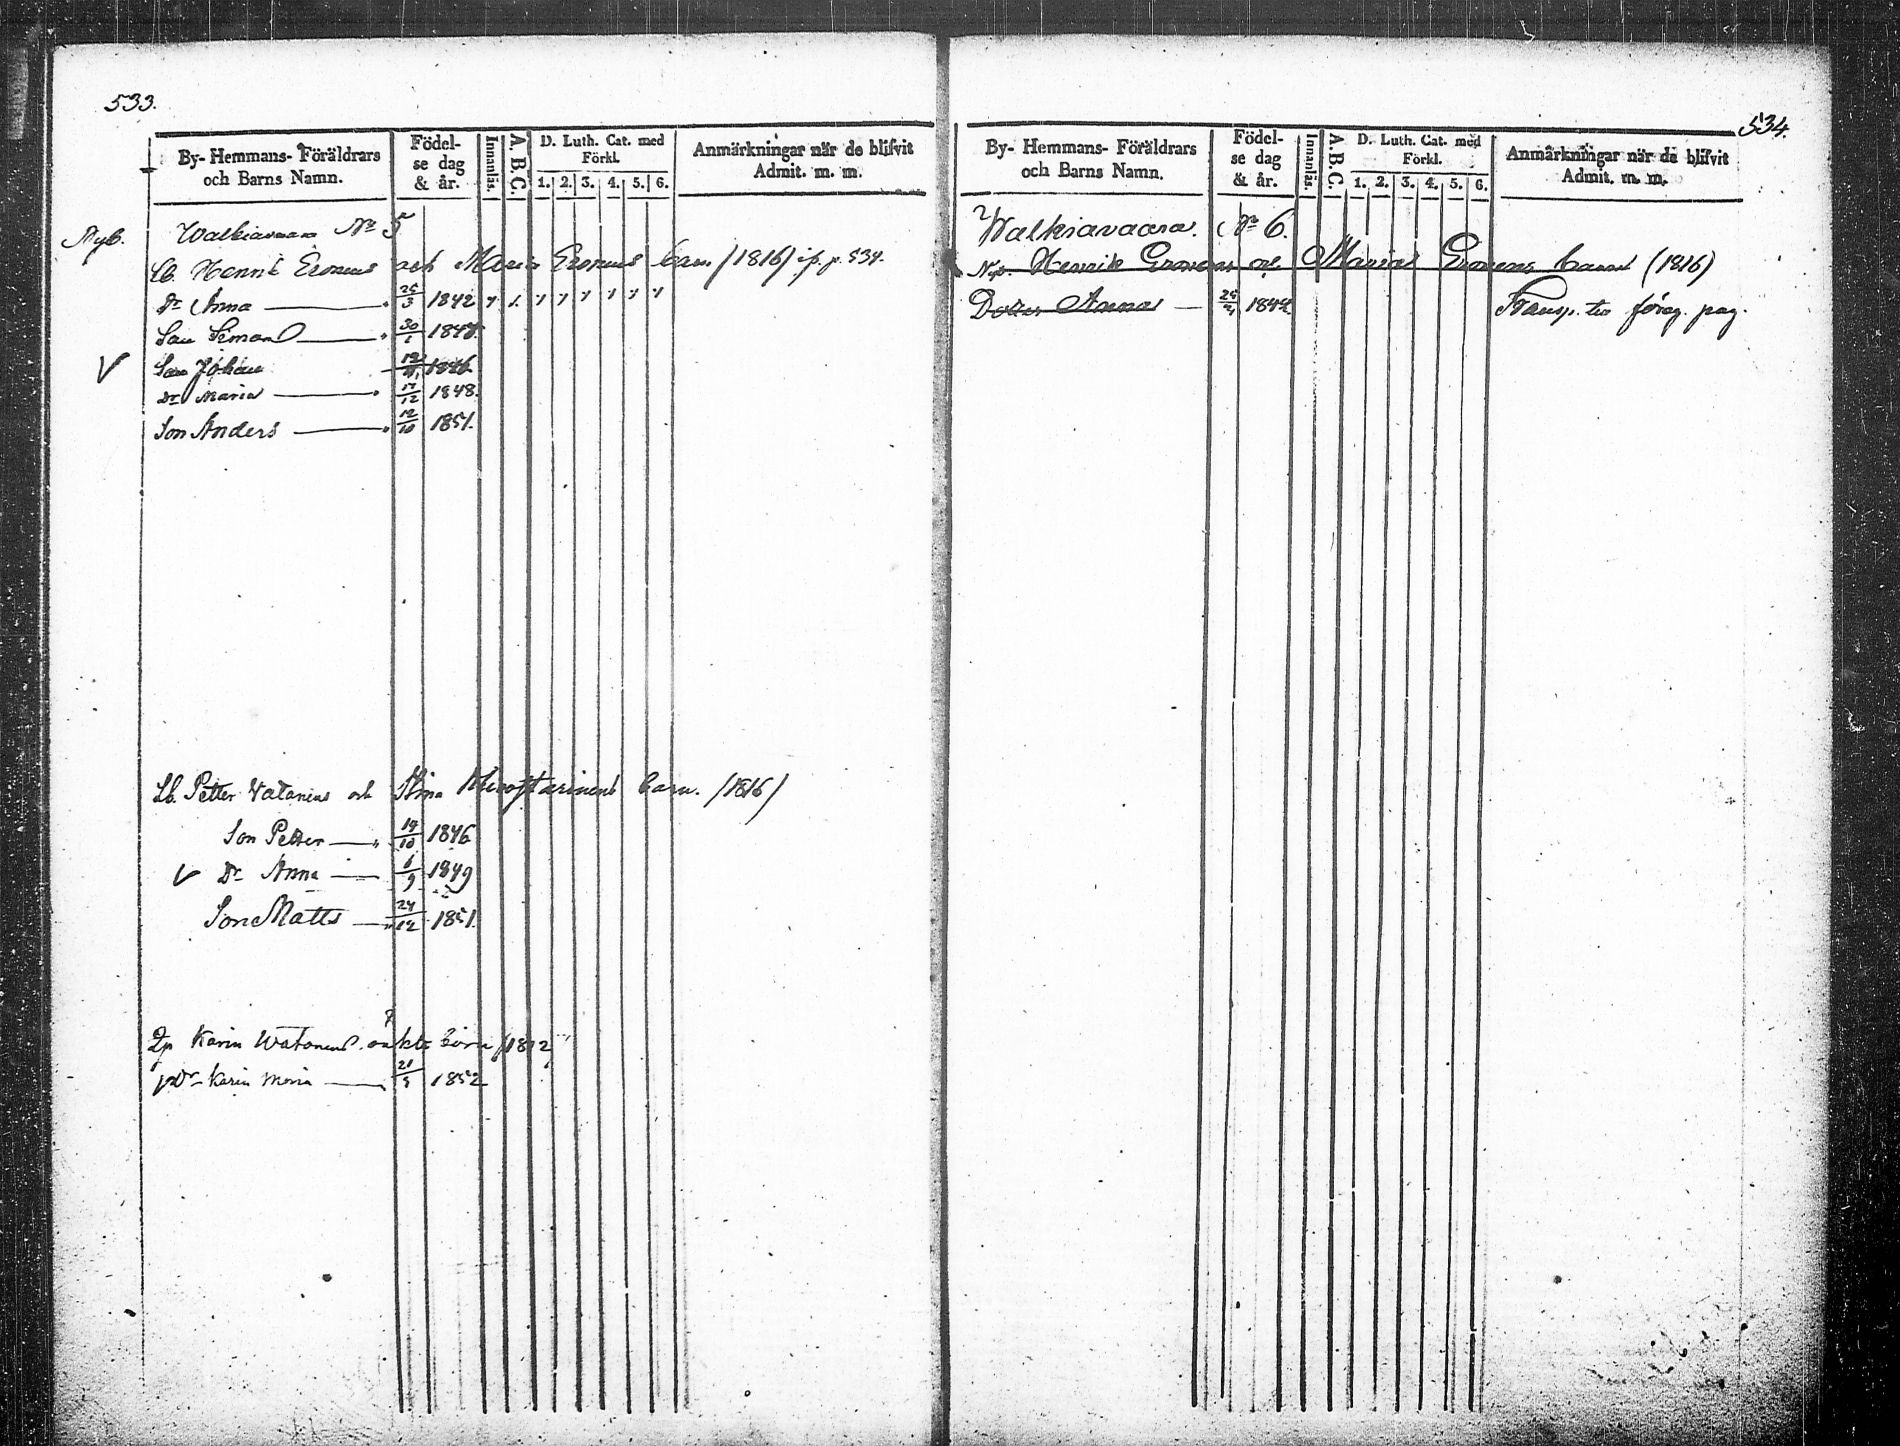 533.
By- Hemmans- Föräldrars och Barns Namn.
Födelse dag & år.
Innanläs.
A. B. C.
D. Luth. Cat. med Förkl.
1. 2. 3. 4. 5. 6.
Anmärkningar när de blifvit Admit. m. m.
Nyb. Walkiavaara No 5
Lb. Henrik Eronens och Maria Eronens barn (1816) p. 534.
Dr Anna 25/3 1842
Son Simon 30/1 1845
Son Johan 1846
Dr Maria 17/12 1848.
Son Anders 12/10 1851.
Lb. Petter Vatanens och Stina barn. (1816)
Son Petter 19/10 1846
Dr Anna 6/9 1849
Son Matts 24/12 1851.
Karin Watonens barn
Dr Karin Maria 21/5 1852
534.
By- Hemmans- Föräldrars och Barns Namn.
Födelse dag & år.
Innanläs.
A. B. C.
D. Luth. Cat. med Förkl.
1. 2. 3. 4. 5. 6.
Anmärkningar när de blifvit Admit. m. m.
Walkiavaara. No 6.
Henrik Eronens och Marias Eronens barn (1816)
Dotter Anna 25/3 1842 Transp. till föreg. pag.